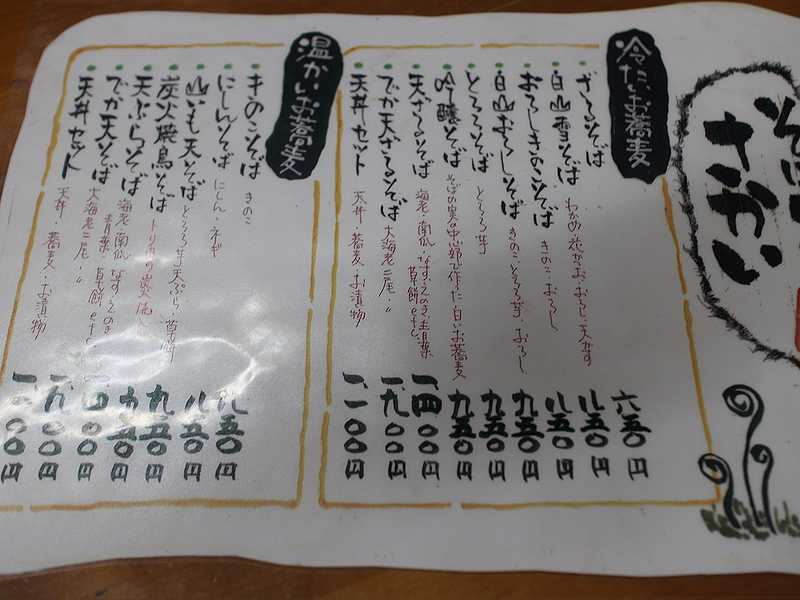 さかい
冷たいお蕎麦
ざるそば 六五〇円
白山雪そば わかめ・花がつお・おろし・天かす 八五〇円
おろしきのこそば きのこ・おろし 八五〇円
白山おろしそば きのこ・とろろ芋・おろし 九五〇円
とろろそば とろろ芋 九五〇円
吟醸そば そばの実の中心部で作った白いお蕎麦 九五〇円
天ざるそば 海老・南瓜・なす・えのき・青葉・草餅etc. 一、四〇〇円
でか天ざるそば 大海老二尾・〃 一、九〇〇円
天丼セット 天丼・蕎麦・お漬物 一、一〇〇円
温かいお蕎麦
きのこそば きのこ 八五〇円
にしんそば にしん・ネギ 八五〇円
山いも天そば とろろ芋天ぷら・草餅 九五〇円
炭火焼鳥そば トリ肉の炭火焼 九五〇円
天ぷらそば 海老・南瓜・なす・えのき・青葉・草餅etc. 一、四〇〇円
でか天そば 大海老二尾・〃 一、九〇〇円
天丼セット 天丼・蕎麦・お漬物 一、一〇〇円